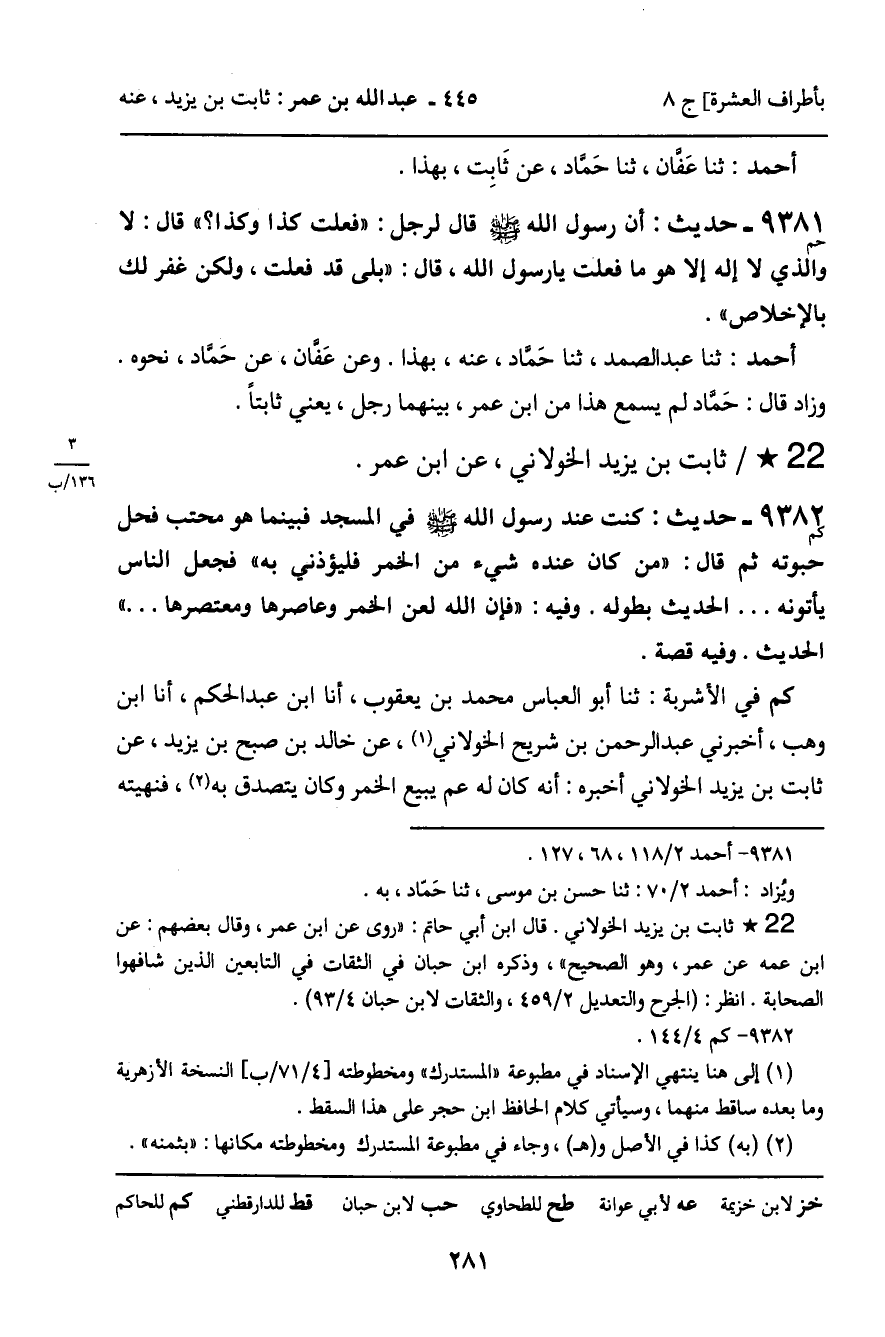 بأطراف العشرة] ج ٨ ٤٤٥ ـ عبدالله بن عمر : ثابت بن يزيد ، عنه
أحمد : ثنا عَفَّان ، ثنا حَمَّاد ، عن ثَابِت ، بهذا .
٩٣٨١ ـ حديث : أن رسول الله ﷺ قال لرجل : «فعلت كذا وكذا؟» قال : لا
حم
والذي لا إله إلا هو ما فعلت يارسول الله ، قال : «بلى قد فعلت ، ولكن غفر لك
بالإخلاص» .
أحمد : ثنا عبدالصمد ، ثنا حَمَّاد ، عنه ، بهذا . وعن عَفَّان ، عن حَمَّاد ، نحوه .
وزاد قال : حَمَّاد لم يسمع هذا من ابن عمر ، بينهما رجل ، يعني ثابتاً .
22 ★ / ثابت بن يزيد الخولاني ، عن ابن عمر .
٣
١٣٦/ب
٩٣٨٢ ـ حديث : كنت عند رسول الله ﷺ في المسجد فبينما هو محتب فحل
كم
حبوته ثم قال : «من كان عنده شيء من الخمر فليؤذني به» فجعل الناس
يأتونه ... الحديث بطوله . وفيه : «فإن الله لعن الخمر وعاصرها ومعتصرها ...»
الحديث . وفيه قصة .
كم في الأشربة : ثنا أبو العباس محمد بن يعقوب ، أنا ابن عبدالحكم ، أنا ابن
وهب ، أخبرني عبدالرحمن بن شريح الخولاني(١) ، عن خالد بن صبح بن يزيد ، عن
ثابت بن يزيد الخولاني أخبره : أنه كان له عم يبيع الخمر وكان يتصدق به(٢) ، فنهيته
٩٣٨١- أحمد ١١٨/٢ ، ٦٨ ، ١٢٧ .
ويُزاد : أحمد ٧٠/٢ : ثنا حسن بن موسى ، ثنا حَمّاد ، به .
22 ★ ثابت بن يزيد الخولاني . قال ابن أبي حاتم : «روى عن ابن عمر ، وقال بعضهم : عن
ابن عمه عن عمر ، وهو الصحيح» ، وذكره ابن حبان في الثقات في التابعين الذين شافهوا
الصحابة . انظر : (الجرح والتعديل ٤٥٩/٢ ، والثقات لابن حبان ٩٣/٤) .
٩٣٨٢- كم ١٤٤/٤ .
(١) إلى هنا ينتهي الإسناد في مطبوعة «المستدرك» ومخطوطته [٧١/٤/ب] النسخة الأزهرية
وما بعده ساقط منهما ، وسيأتي كلام الحافظ ابن حجر على هذا السقط .
(٢) (به) كذا في الأصل و(هـ) ، وجاء في مطبوعة المستدرك ومخطوطته مكانها : «بثمنه» .
خز لابن خزيمة عه لأبي عوانة طح للطحاوي حب لابن حبان قط للدارقطني كم للحاكم
٢٨١